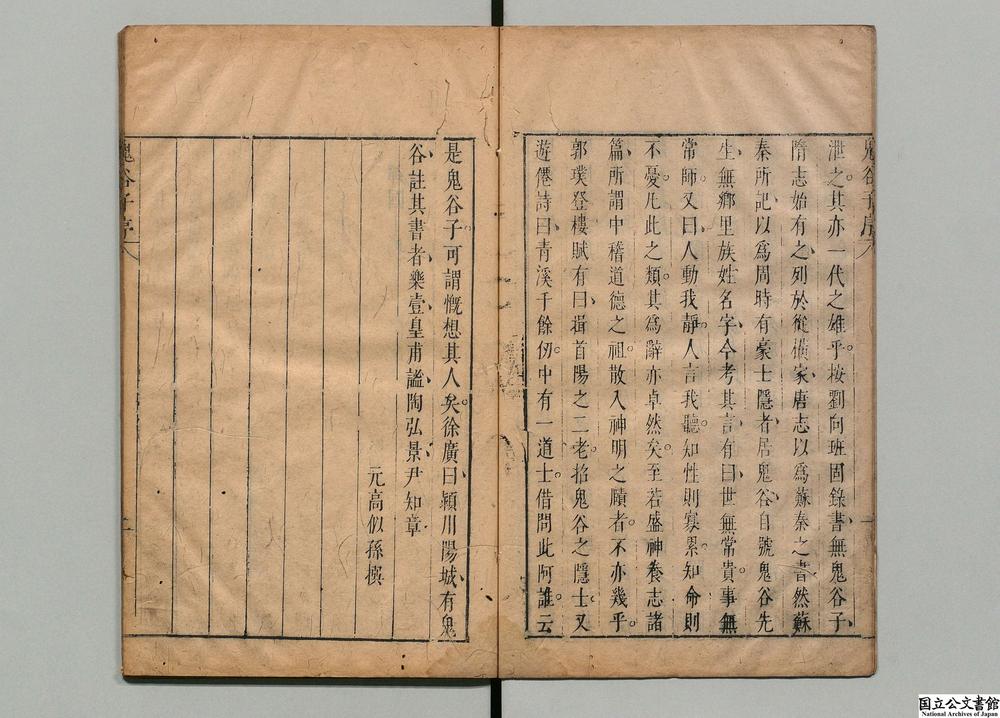 鬼谷子序
泄之其亦一代之雄乎按劉向班固錄書無鬼谷子
隋志始有之列於從橫家唐志以為蘇秦之書然蘇
秦所記以為周時有豪士隱者居鬼谷自號鬼谷先
生無鄉里族姓名字今考其言有曰世無常貴事無
常師又曰人動我靜人言我聽知性則寡累知命則
不憂凡此之類其為辭亦卓然矣至若盛神養志諸
篇所謂中稽道德之祖散入神明之賾者不亦幾乎
郭璞登樓賦有曰揖首陽之二老招鬼谷之隱士又
遊僊詩曰青溪千餘仞中有一道士借問此阿誰云
是鬼谷子可謂慨想其人矣徐廣曰潁川陽城有鬼
谷註其書者樂壹皇甫謐陶弘景尹知章
元高似孫撰
鬼谷子序
二
国立公文書館
National Archives of Japan